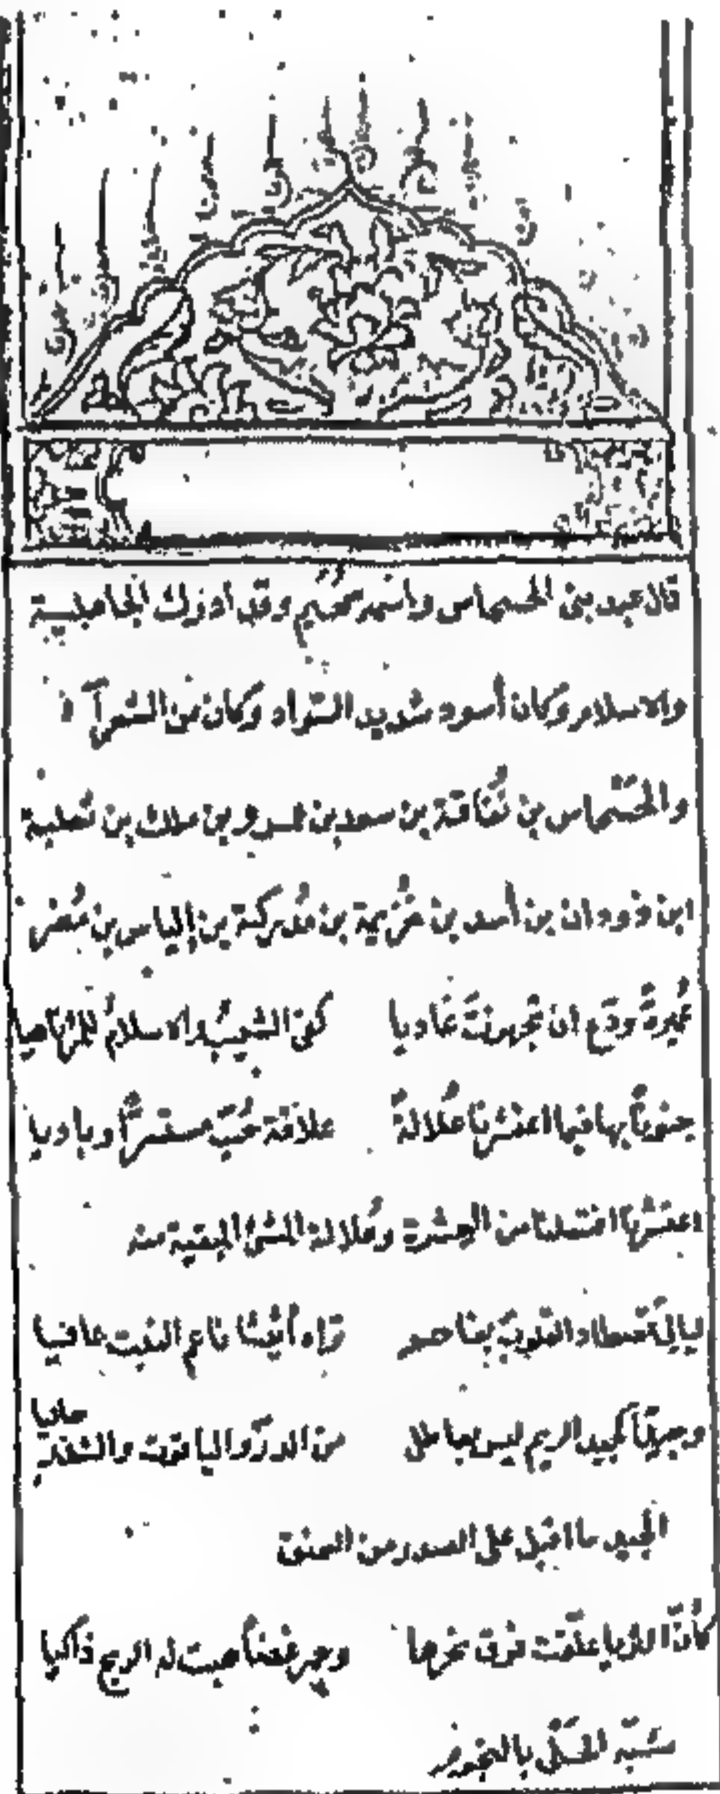 قال عبد بنى الحسحاس واسمه سُحَيم وقد ادرك الجاهلية
والاسلام وكان أسود شديد السواد وكان من الشعرآ
والحَسْحاس بن نُفاثة بن سعد بن عمرو بن ملك بن ثعلبة
ابن دودان بن أسد بن خُزيمة بن مُدركة بن إلياس بن مُضر
عُميرةَ ودّع ان تجهزتَ غاديا كفى الشيبُ والاسلامُ للمرء ناهيا
جنوناً بها فيما اعتشرنا عُلالةً علاقة حُبّ مستسرًّا وباديا
اعتشرنا افتعلنا من العِشرة وعُلالة الشئ البقية منه
ليالىَ تصطاد القلوبَ بفاحم تراه أثيثًا ناعم النبت عافيا
وجيدٍ كجيد الريم ليس بعاطل من الدرّ والياقوت والشذر حاليا
الجيد ما اقبل على الصدر من العنق
كأنّ الثريا علّقت فوق نحرها وجمر غضاً هبت له الريح ذاكيا
شبّه الحَلْى بالنجوم